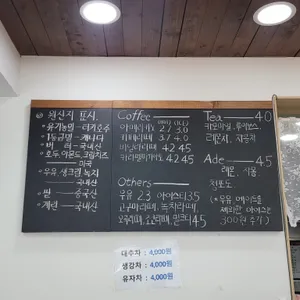 ◎ 원산지 표시.
• 유기농밀 - 터키, 호주
• 1등급밀 - 캐나다
• 버터 - 국내산
• 호두, 아몬드, 크림치즈
- 미국
• 우유, 생크림, 녹차
- 국내산
• 쌀 - 중국산
• 계란 - 국내산
Coffee (HOT) (ICE)
아메리카노 2.7 3.0
카페라떼 3.7 4.0
바닐라라떼 4.2 4.5
카라멜마끼아또 4.2 4.5
Others
우유 2.3 아이스티 3.5
고구마라떼, 녹차라떼
오곡라떼, 초코라떼, 밀크티 4.5
Tea 4.0
카모마일, 루이보스,
레몬차, 자몽차
Ade 4.5
레몬, 자몽
청포도
(* 우유, 에이드를
제외한 아이스는
300원 추가)
대추차 : 4,000원
생강차 : 4,000원
유자차 : 4,000원